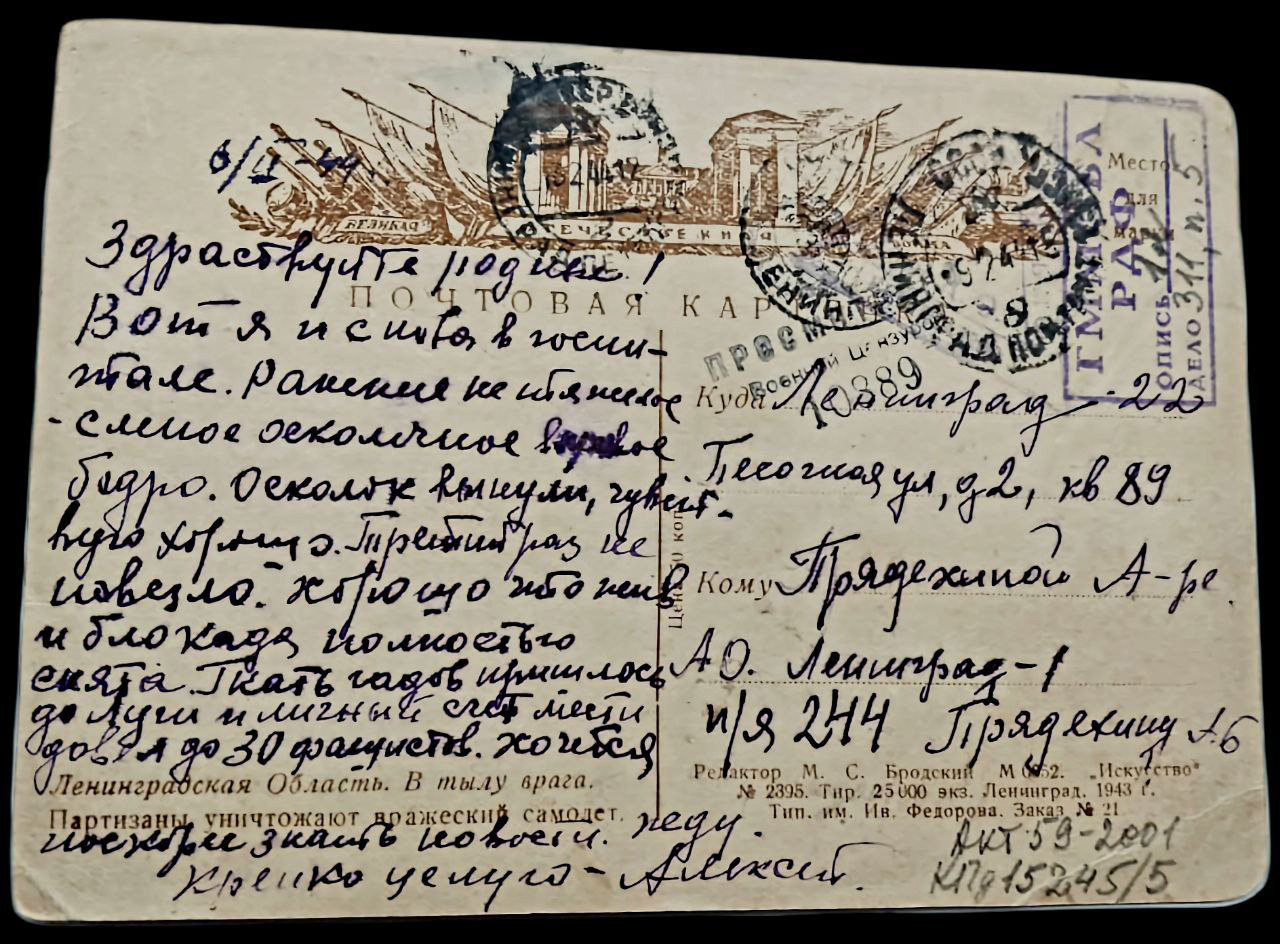 6/II-44 г.
ВЕЛИКАЯ ОТЕЧЕСТВЕННАЯ ВОЙНА
ПОЧТОВАЯ КАР
Здраствуйте родные!
Вот я и снова в госпи-
тале. Ранение не тяжелое
- слепое осколочное в правое
бедро. Осколок вынули, чувст-
вую хорошо. Третий раз не
повезло. Хорошо что жив
и блокада полностью
снята. Гнать гадов пришлось
до Луги и личный счет мести
довел до 30 фашистов. Хочется
Ленинградская Область. В тылу врага.
Партизаны уничтожают вражеский самолет.
поскорее знать новости. Жду.
Крепко целую - Алексей.
12
ЛЕНИНГРАД
9 2 44
ЛЕНИНГРАД ПОЧТАМТ
ПРОСМ
Военной Цензурой
10889
Место
для
марки
ГМИ
РАФ
ОПИСЬ
ДЕЛО 311, л. 5
Куда Ленинград - 22
Песочная ул, д 2, кв 89
Кому Прядехиной А-ре
Цена коп
АО. Ленинград-1
п/я 244 Прядехину АБ
Редактор М. С. Бродский М „Искусство“
№ 2395. Тир. 25 000 экз. Ленинград. 1943 г.
Тип. им. Ив. Федорова. Заказ № 21
Акт 59-2001
КПд 15245/5